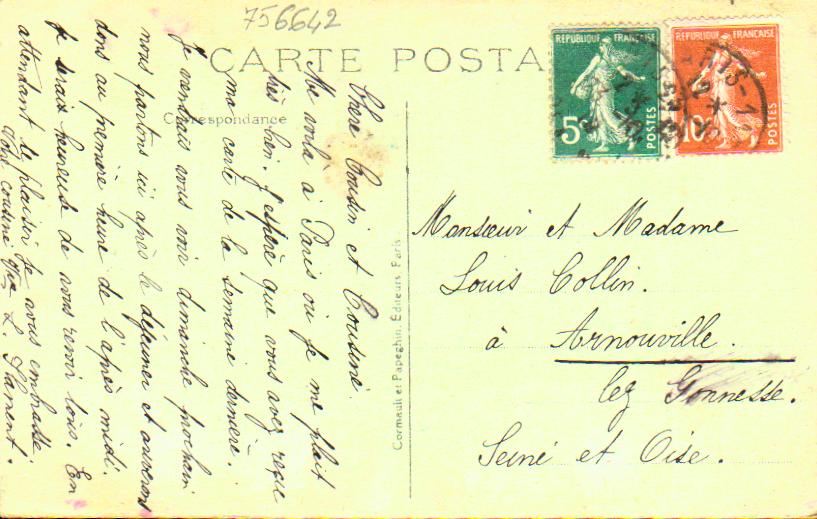 756642
CARTE POSTA
Correspondance
Chère Cousin et Cousine
Me voilà à Paris où je me plait
très bien. J'espère que vous avez reçu
ma carte de la semaine dernière.
Je viendrais vous voir dimanche prochain
nous partons ici après le déjeuner et arriverons
donc au première heure de l'après midi.
Je serais heureuse de vous revoir tous. En
attendant le plaisir je vous embrasse.
Votre cousine L. Flamant.
Cormault et Papeghin, Editeurs Paris
REPUBLIQUE FRANÇAISE
5
POSTES
REPUBLIQUE FRANÇAISE
10
POSTES
Monsieur et Madame
Louis Collin.
à Arnouville.
lez Gonnesse.
Seine et Oise.